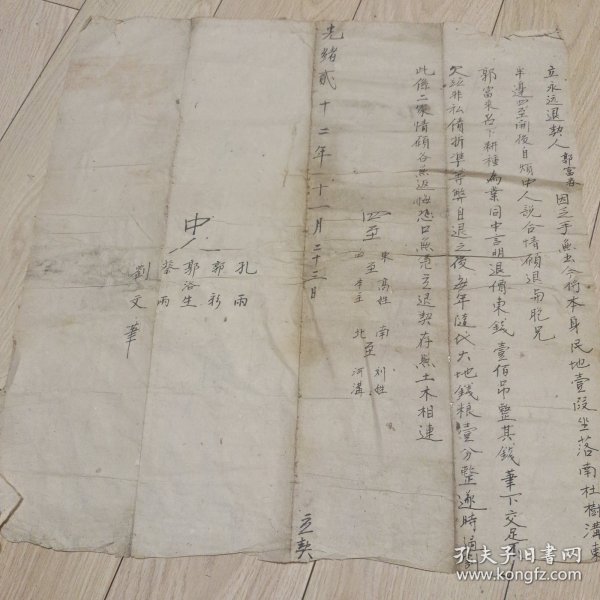 立永远退契人郭富春因乏手無出今将本身民地壹段坐落南杜樹溝東
半邊四至開後自煩中人説合情願退与胞兄
郭富來名下耕種為業同中言明退價東錢壹佰吊整其錢筆下交足
欠並非私債折準等弊自退之後每年隨代大地錢粮壹分整遂時
此係二家情願各無返悔恐口無憑立退契存照土木相連
四至
東至高姓 南至刘姓
西至本主 北至河溝
光緒貳十二年十一月二十三日
立契
中人
孔雨
郭彩
郭洛生
蔡雨
劉文華
孔夫子旧书网
www.kongfz.com